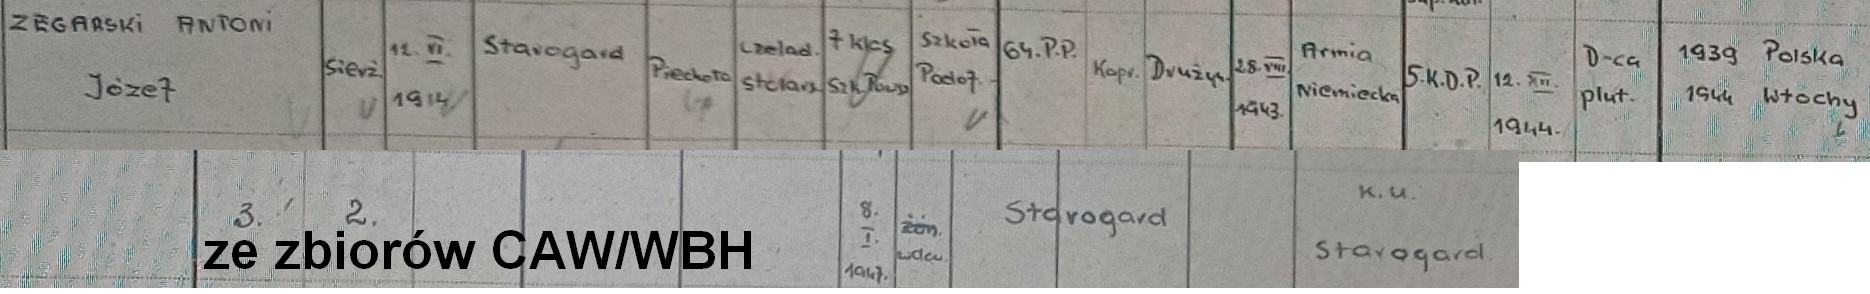 ZEGARSKI ANTONI
Józef
sierż
12. VI.
1914
Starogard
Piechota
czelad.
stolars
7 klas
Szk. Powsz
Szkoła
Podof.
64. P.P.
Kapr.
Drużyn.
28. VIII.
1943.
Armia
Niemiecka
5.K.D.P.
12. XII.
1944.
D-ca
plut.
1939 Polska
1944 Włochy
3.
2.
8.
I.
1947.
żon.
Starogard
K.U.
Starogard.
ze zbiorów CAW/WBH